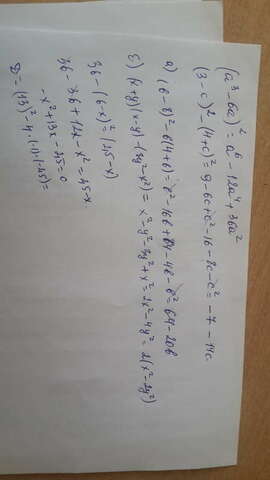 (a³ - 6a)² = a⁶ - 12a⁴ + 36a²
(3 - c)² - (4+c)² = 9 - 6c + c² - 16 - 8c - c² = -7 - 14c
а) (в - 8)² - в(4+в) = в² - 16в + 64 - 4в - в² = 64 - 20в
с) (x+y)(x-y) - (3y² - x²) = x² - y² - 3y² + x² = 2x² - 4y² = 2(x² - 2y²)
36 - (6-x)² = (2,5 - x)
36 - 36 + 12x - x² = 45 - x
-x² + 13x - 25 = 0
D = (13)² - 4·(-1)·(-45) =